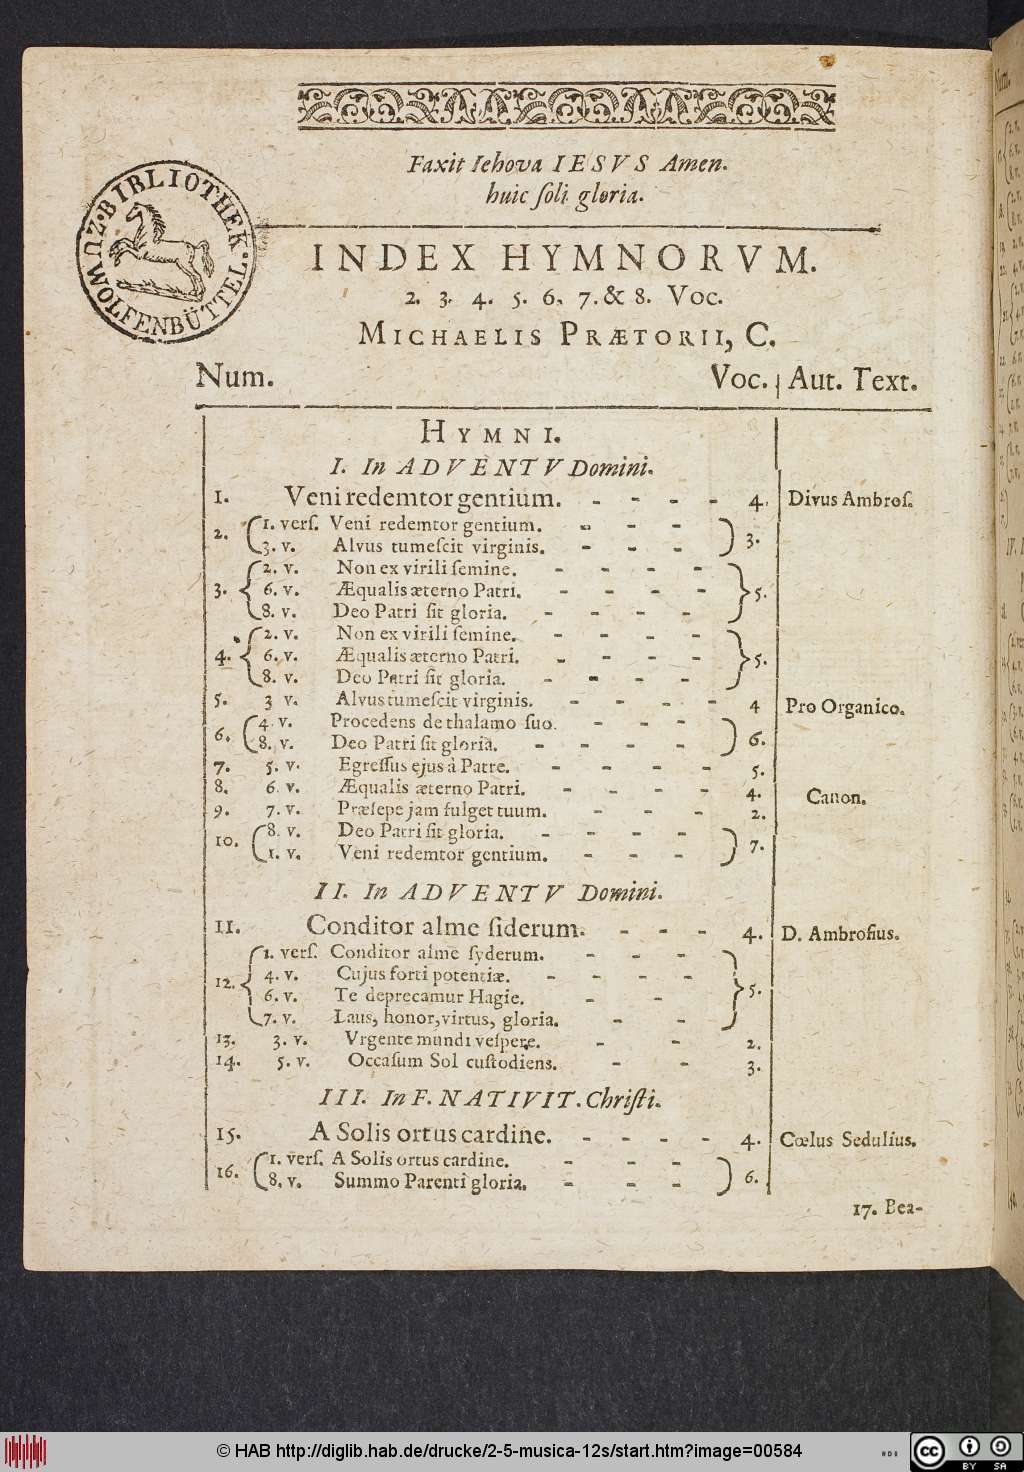 Faxit Iehova IESVS Amen.
huic ſoli gloria.
BIBLIOTHEK ZU WOLFENBÜTTEL.
INDEX HYMNORVM.
2. 3. 4. 5. 6. 7. & 8. Voc.
MICHAELIS PRÆTORII, C.
Num. Voc. Aut. Text.
HYMNI.
I. In ADVENTV Domini.
1. Veni redemtor gentium. - - - - 4. Divus Ambroſ.
2. 1. verſ. Veni redemtor gentium. - - - 3.
3. v. Alvus tumeſcit virginis. - - -
3. 2. v. Non ex virili ſemine. - - - - 5.
6. v. Æqualis æterno Patri. - - - -
8. v. Deo Patri ſit gloria. - - - -
4. 2. v. Non ex virili ſemine. - - - - 5.
6. v. Æqualis æterno Patri. - - - -
8. v. Deo Patri ſit gloria. - - - -
5. 3 v. Alvus tumeſcit virginis. - - - - 4 Pro Organico.
6. 4. v. Procedens de thalamo ſuo. - - - 6.
8. v. Deo Patri ſit gloria. - - - -
7. 5. v. Egreſſus ejus à Patre. - - - - 5.
8. 6. v. Æqualis æterno Patri. - - - - 4. Canon.
9. 7. v. Præſepe jam fulget tuum. - - - 2.
10. 8. v. Deo Patri ſit gloria. - - - - 7.
1. v. Veni redemtor gentium. - - -
II. In ADVENTV Domini.
11. Conditor alme ſiderum. - - - 4. D. Ambroſius.
12. 1. verſ. Conditor alme ſyderum. - - - 5.
4. v. Cujus forti potentiæ. - - - -
6. v. Te deprecamur Hagie. - -
7. v. Laus, honor, virtus, gloria. - -
13. 3. v. Vrgente mundi veſpere. - - 2.
14. 5. v. Occaſum Sol cuſtodiens. - - 3.
III. In F. NATIVIT. Chriſti.
15. A Solis ortus cardine. - - - - 4. Cœlus Sedulius.
16. 1. verſ. A Solis ortus cardine. - - - 6.
8. v. Summo Parenti gloria. - - -
17. Bea-
© HAB http://diglib.hab.de/drucke/2-5-musica-12s/start.htm?image=00584
cc BY SA